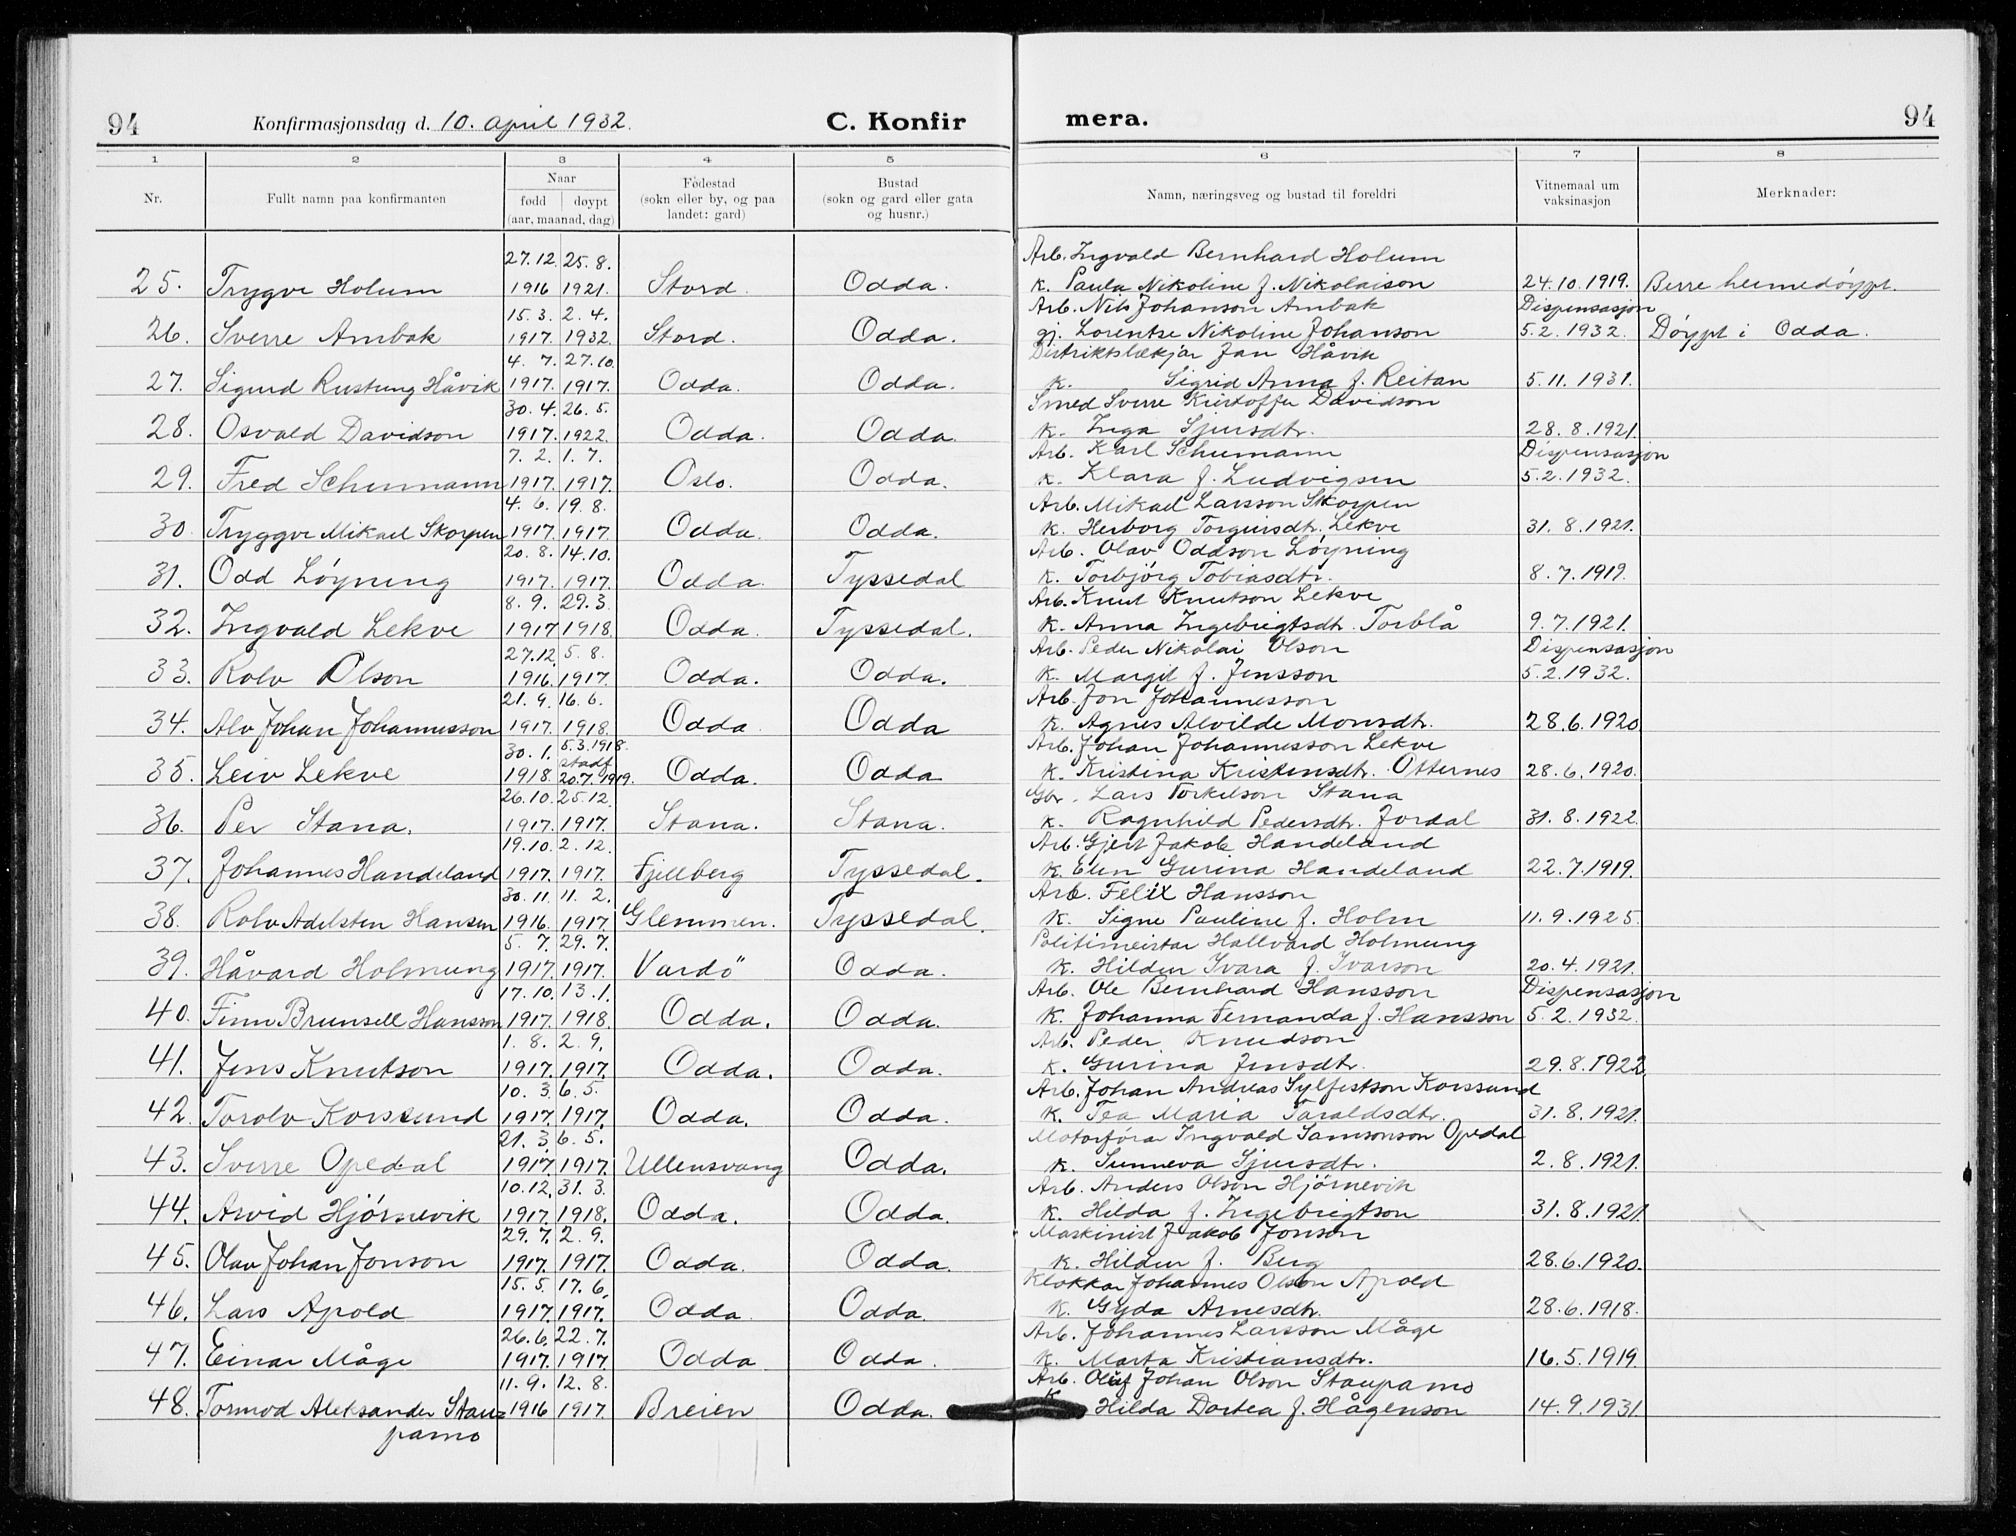 94 Konfirmasjonsdag d. 10. april 1932. C. Konfir mera. 94
1 2 3 4 5 6 7 8
Nr. Fullt namn paa konfirmanten Naar Fødestad Bustad Namn, næringsveg og bustad til foreldri Vitnemaal um Merknader:
fødd døypt (sokn eller by, og paa (sokn og gard eller gata vaksinasjon
(aar, maanad, dag) landet: gard) og husnr.)
27.12. 25.8. Arb. Ingvald Bernhard Holum
25. Trygve Holum 1916 1921. Stord. Odda. k. Paula Nikoline f. Nikolaison 24.10.1919. Berre heimedøypt.
15.3. 2.4. Arb. Nils Johanson Ambak Dispensasjon
26. Sverre Ambak 1917. 1932. Stord. Odda. gj. Lorentze Nikoline Johanson 5.2.1932. Døypt i Odda.
4.7. 27.10. Distriktslækjar Jan Håvik
27. Sigurd Rustung Håvik 1917. 1917. Odda. Odda. k. Sigrid Anna f. Reitan 5.11.1931.
30.4. 26.5. Smed Sverre Kristoffer Davidson
28. Osvald Davidson 1917. 1922. Odda. Odda. k. Inga Sjursdtr. 28.8.1921.
7.2. 1.7. Arb. Karl Schumann Dispensasjon
29. Fred Schumann 1917. 1917. Oslo. Odda. k. Klara f. Ludvigsen 5.2.1932.
4.6. 19.8. Arb. Mikael Larsson Skorpen
30. Tryggve Mikael Skorpen 1917. 1917. Odda. Odda. k. Herborg Torgeirsdtr. Lekve 31.8.1921.
20.8. 14.10. Arb. Olav Oddson Løyning
31. Odd Løyning 1917. 1917. Odda. Tyssedal k. Torbjørg Tobiasdtr. 8.7.1919.
8.9. 29.3. Arb. Knut Knutson Lekve
32. Ingvald Lekve 1917 1918. Odda. Tyssedal. k. Anna Ingebrigtsdtr. Torblå 9.7.1921.
27.12. 5.8. Arb. Peder Nikolai Olson Dispensasjon
33. Rolv Olson 1916. 1917. Odda. Odda. k. Margit f. Jensson 5.2.1932.
21.9. 16.6. Arb. Jon Johannesson
34. Alv Johan Johannesson 1917. 1918. Odda Odda k. Agnes Alvilde Monsdtr. 28.6.1920.
30.1. 5.3.1918. stadf. Arb. Johan Johannesson Lekve
35. Leiv Lekve 1918. 20.7.1919. Odda. Odda k. Kristina Kristensdtr. Otternes 28.6.1920.
26.10. 25.12. Gbr. Lars Torkelson Stana
36. Per Stana. 1917. 1917. Stana. Stana. k. Ragnhild Pedersdtr. Jordal 31.8.1922.
19.10. 2.12. Arb. Gjert Jakob Handeland
37. Johannes Handeland 1917. 1917. Fjellberg Tyssedal. k. Elen Gurina Handeland 22.7.1919.
30.11. 11.2. Arb. Felix Hansson
38. Rolv Adelsten Hansen 1916. 1917. Glemmen. Tyssedal. k. Signe Pauline f. Holm 11.9.1925.
5.7. 29.7. Politimeistar Hallvard Holmung
39. Håvard Holmung 1917. 1917. Vardö Odda. k. Hildur Ivara f. Ivarson 20.4.1921.
17.10. 13.1. Arb. Ole Bernhard Hansson Dispensasjon
40. Finn Brunsell Hansson 1917. 1918. Odda. Odda. k. Johanna Fernanda f. Hansson 5.2.1932.
1.8. 2.9. Arb. Peder Knudson
41. Jens Knutson 1917. 1917. Odda. Odda. k. Gurina Jensdtr. 29.8.1922.
10.3. 6.5. Arb. Johan Andreas Sylfestson Korssund
42. Torolv Korssund 1917. 1917. Odda. Odda. k. Tea Maria Taraldsdtr. 31.8.1921.
21.3. 6.5. Motorførar Ingvald Samsonson Opedal
43. Sverre Opedal 1917. 1917. Ullensvang Odda. k. Sunneva Sjursdtr. 2.8.1921.
10.12. 31.3. Arb. Anders Olson Hjørnevik
44. Arvid Hjørnevik 1917. 1918. Odda. Odda. k. Hilda f. Ingebrigtson 31.8.1921.
29.7. 2.9. Maskinist Jakob Jonson
45. Olav Johan Jonson 1917. 1917. Odda. Odda. k. Hildur f. Berg 28.6.1920.
15.5. 17.6. Klokkar Johannes Olson Apold
46. Lars Apold 1917. 1917. Odda Odda. k. Gyda Arnesdtr. 28.6.1918.
26.6. 22.7. Arb. Johannes Larsson Måge
47. Einar Måge 1917. 1917. Odda Odda. k. Marta Kristiansdtr. 16.5.1919
11.9. 12.8. Arb. Oluf Johan Olson Staupamo
48. Tormod Aleksander Stau= 1916 1917. Breien Odda. k. Hilda Dortea f. Hågenson 14.9.1931
pamo